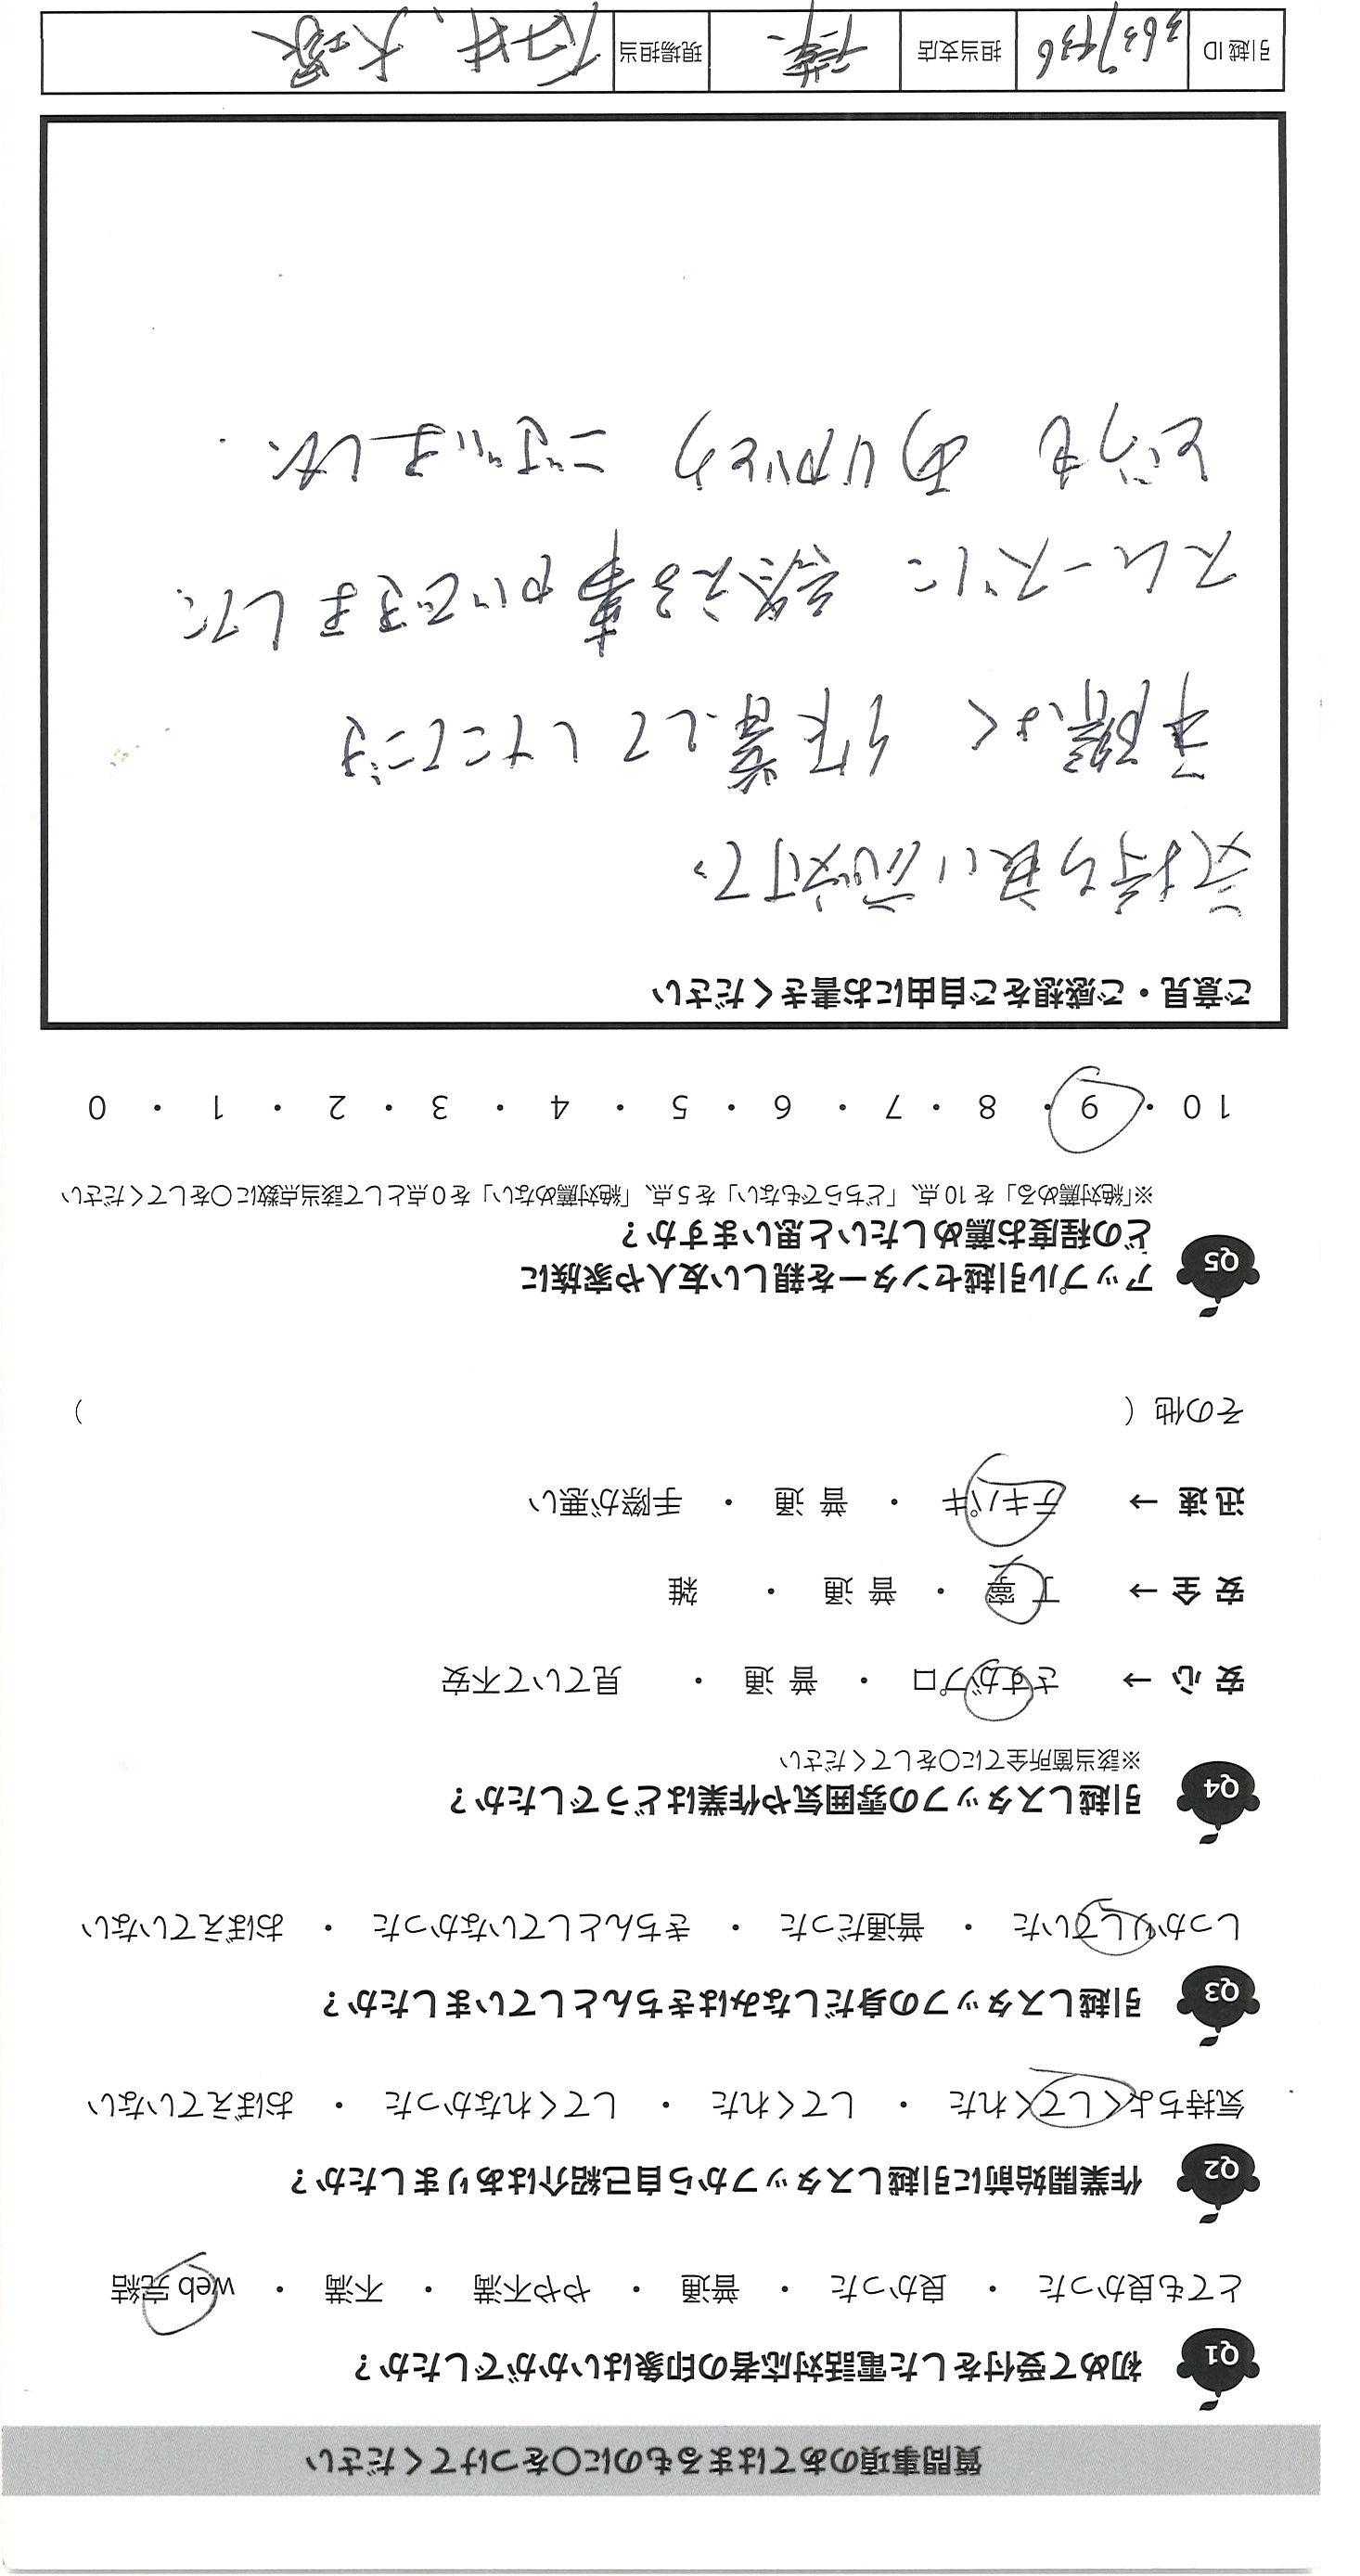 質問事項のあてはまるものに○をつけてください
Q1 初めて受付をした電話対応者の印象はいかがでしたか？
とても良かった ・ 良かった ・ 普通 ・ やや不満 ・ 不満 ・ web 完結
Q2 作業開始前に引越しスタッフから自己紹介はありましたか？
気持ちよくしてくれた ・ してくれた ・ してくれなかった ・ おぼえていない
Q3 引越しスタッフの身だしなみはきちんとしていましたか？
しっかりしていた ・ 普通だった ・ きちんとしていなかった ・ おぼえていない
Q4 引越しスタッフの雰囲気や作業はどうでしたか？
※該当箇所全てに○をしてください
安心 → さすがプロ ・ 普通 ・ 見ていて不安
安全 → 丁寧 ・ 普通 ・ 雑
迅速 → テキパキ ・ 普通 ・ 手際が悪い
その他（ ）
Q5 アップル引越センターを親しい友人や家族に
どの程度お薦めしたいと思いますか？
※「絶対薦める」を 10 点、「どちらでもない」を 5 点、「絶対薦めない」を 0 点として該当点数に○をしてください
10 ・ 9 ・ 8 ・ 7 ・ 6 ・ 5 ・ 4 ・ 3 ・ 2 ・ 1 ・ 0
ご意見・ご感想をご自由にお書きください
気持ち良い応対で、
手際よく 作業してしたてごき
スムーズに 終える事ができました
どうも ありがとう ございました．
引越 ID 3637436 担当支店 現場担当 石井、大塚